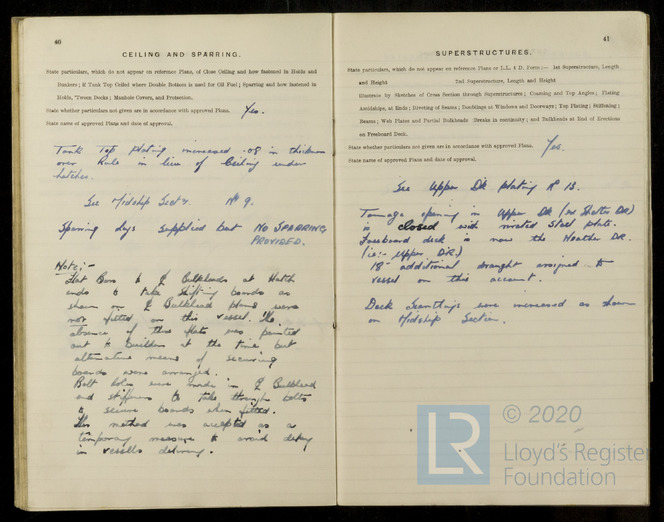 40
CEILING AND SPARRING.
State particulars, which do not appear on reference Plans, of Close Ceiling and how fastened in Holds and
Bunkers; if Tank Top Ceiled where Double Bottom is used for Oil Fuel; Sparring and how fastened in
Holds, 'Tween Decks; Manhole Covers, and Protection.
State whether particulars not given are in accordance with approved Plans. Yes.
State name of approved Plans and date of approval.
Tank Top plating increased .08 in thickness
over Rule in lieu of Ceiling under
hatches.
See Midship Sectn. No 9.
Sparring clips supplied but NO SPARRING
PROVIDED.
Note:-
Flat Bars to ₵ Bulkheads at Hatch
ends to take shifting boards as
shewn on ₵ Bulkhead plans were
not fitted on this vessel. The
absence of these flats was pointed
out to Builders at the time but
alternative means of securing
boards were arranged.
Bolt holes were made in ₵ Bulkhead
and stiffeners to take through bolts
to secure boards when fitted.
This method was accepted as a
temporary measure to avoid delay
in vessels delivery.
41
SUPERSTRUCTURES.
State particulars, which do not appear on reference Plans or L.L. & D. Form:— 1st Superstructure, Length
and Height 2nd Superstructure, Length and Height
Illustrate by Sketches of Cross Section through Superstructures; Coaming and Top Angles; Plating
Amidships, at Ends; Riveting of Beams; Doublings at Windows and Doorways; Top Plating; Stiffening;
Beams; Web Plates and Partial Bulkheads Strakes in continuity; and Bulkheads at End of Erections
on Freeboard Deck.
State whether particulars not given are in accordance with approved Plans. Yes.
State name of approved Plans and date of approval.
See Upper Dk plating No 13.
Tonnage opening in Upper Dk (ex Shelter Dk)
is closed with riveted steel plate.
Freeboard deck is now the Weather Dk.
(i.e:- Upper Dk.)
18" additional draught assigned to
vessel on this account.
Deck Scantlings were increased as shewn
on Midship Section.
LR © 2020
Lloyd's Register
Foundation